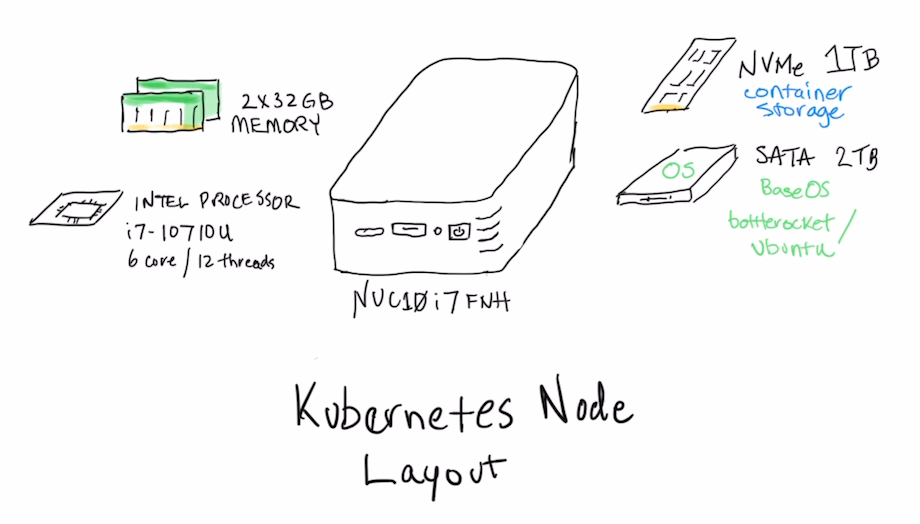 2X32GB
MEMORY
INTEL PROCESSOR
i7-10710U
6 core / 12 threads
NUC10i7FNH
NVMe 1TB
container
storage
SATA 2TB
OS
BaseOS
bottlerocket /
Ubuntu
Kubernetes Node
Layout